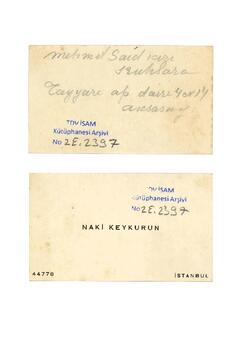 mehmet Said kızı
Tayyare ap daire
aksaray
TDV İSAM
Kütüphanesi Arşivi
No 2E.2397
TDV İSAM
Kütüphanesi Arşivi
No 2E.2397
NAKİ KEYKURUN
44778 İSTANBUL